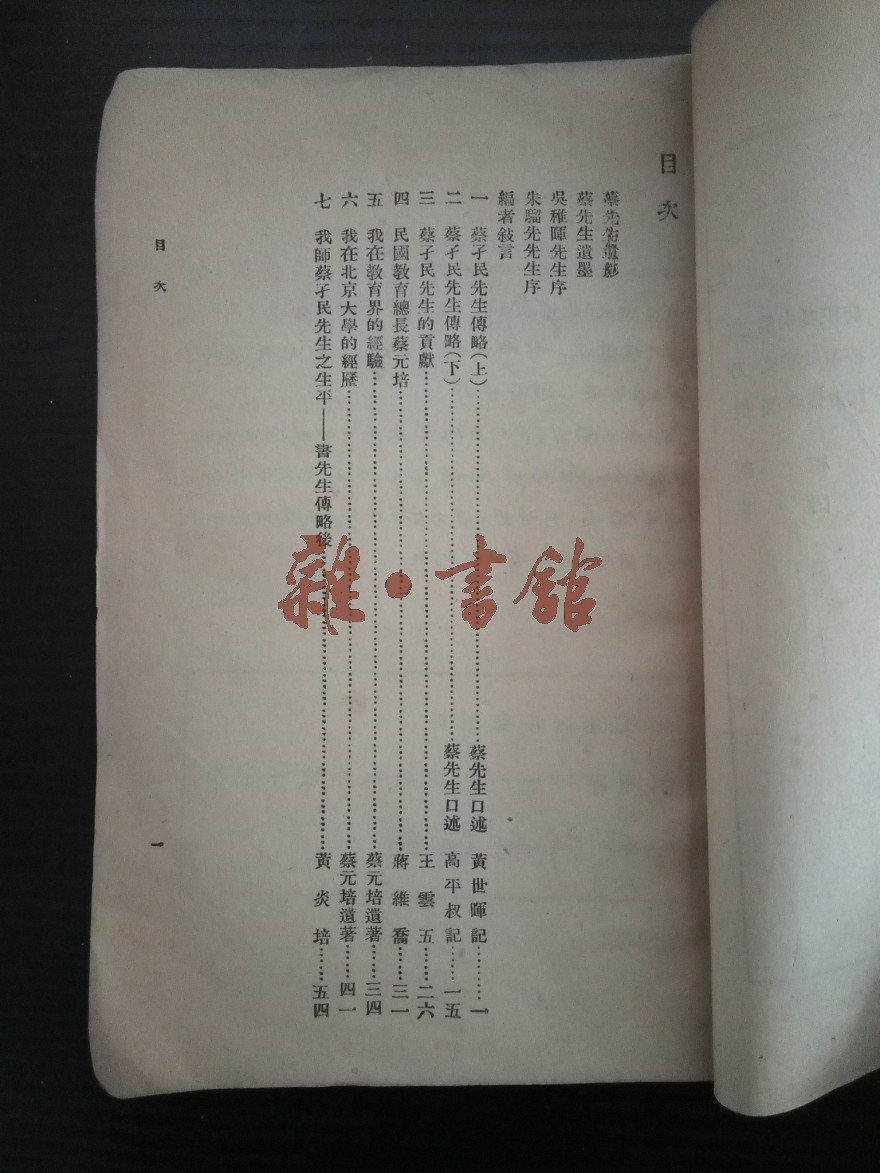 目次
蔡先生遺影
蔡先生遺墨
吳稚暉先生序
朱騮先先生序
編者敍言
一 蔡孑民先生傳略(上)……蔡先生口述 黃世暉記……一
二 蔡孑民先生傳略(下)……蔡先生口述 高平叔記……一五
三 蔡孑民先生的貢獻……王雲五……二六
四 民國教育總長蔡元培……蔣維喬……三一
五 我在教育界的經驗……蔡元培遺著……三四
六 我在北京大學的經歷……蔡元培遺著……四一
七 我師蔡孑民先生之生平——書先生傳略後……黃炎培……五四
目次
一
雜·書館